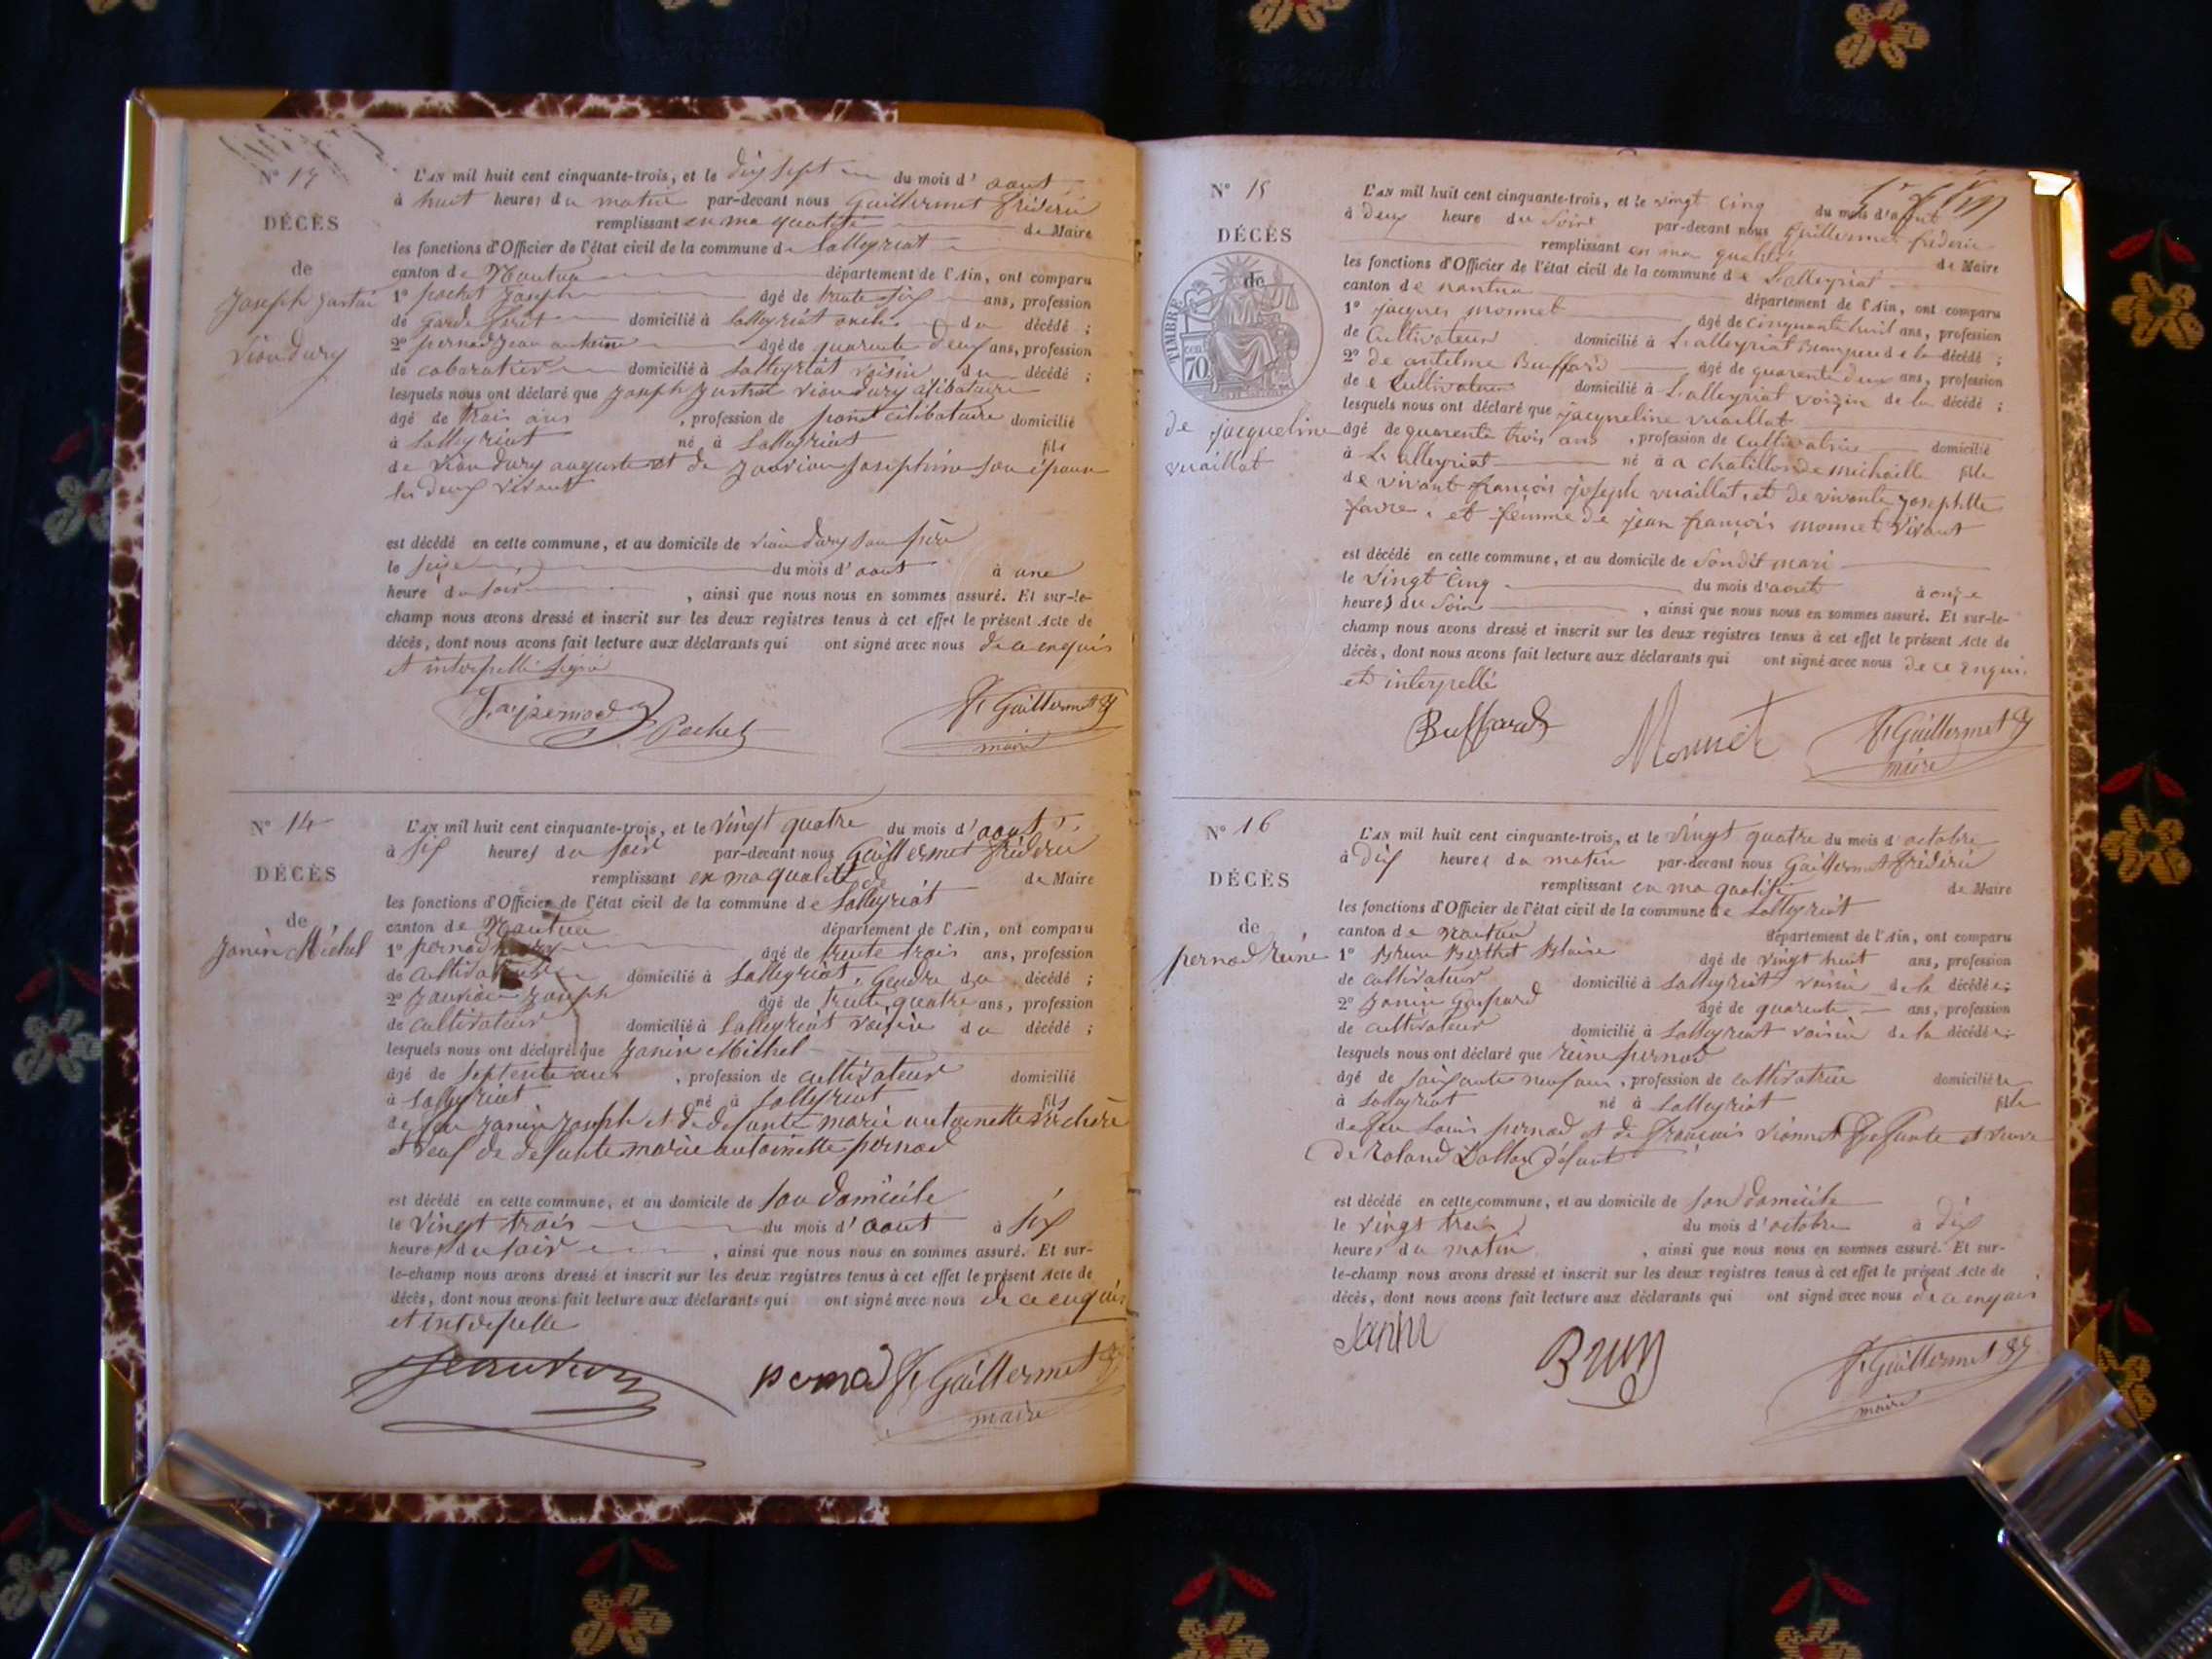 N° 13
DÉCÈS
de
Joseph Justin
Vion dury
L'AN mil huit cent cinquante-trois, et le dix sept du mois d'aout
à huit heures du matin par-devant nous Guillermet fréderic
remplissant en ma qualité de Maire
les fonctions d'Officier de l'état civil de la commune de Lalleyriat
canton de Nantua département de l'Ain, ont comparu
1° pochet Joseph âgé de trente six ans, profession
de garde foret domicilié à Lalleyriat oncle du décédé ;
2° pernod Jean antoine âgé de quarante deux ans, profession
de cabaratier domicilié à Lalleyriat voisin du décédé ;
lesquels nous ont déclaré que Joseph Justin vion dury célibataire
âgé de trois ans , profession de célibataire domicilié
à Lalleyriat né à Lalleyriat fils
de vion dury auguste et de Jauvion Josephine son épouse
les deux vivant
est décédé en cette commune, et au domicile de vion dury son père
le seize du mois d'aout à une
heure du soir , ainsi que nous nous en sommes assuré. Et sur-le-
champ nous avons dressé et inscrit sur les deux registres tenus à cet effet le présent Acte de
décès, dont nous avons fait lecture aux déclarants qui ont signé avec nous de ce enquis
et interpellé signé
J. a. pernod Pochet F. Guillermet
maire
N° 14
DÉCÈS
de
Janin Michel
L'AN mil huit cent cinquante-trois, et le vingt quatre du mois d'aout
à six heures du soir par-devant nous Guillermet fréderic
remplissant en ma qualité de Maire
les fonctions d'Officier de l'état civil de la commune de Lalleyriat
canton de Nantua département de l'Ain, ont comparu
1° pernod âgé de trente trois ans, profession
de cultivateur domicilié à Lalleyriat, Gendre du décédé ;
2° Jauvion Joseph âgé de trente quatre ans, profession
de cultivateur domicilié à Lalleyriat voisin du décédé ;
lesquels nous ont déclaré que Janin Michel
âgé de septente ans , profession de cultivateur domicilié
à Lalleyriat né à Lalleyriat fils
de feu Janin Joseph et de defunte marie antoinette
et veuf de defunte marie antoinette pernod
est décédé en cette commune, et au domicile de son domicile
le vingt trois du mois d'aout à six
heures du soir , ainsi que nous nous en sommes assuré. Et sur-
le-champ nous avons dressé et inscrit sur les deux registres tenus à cet effet le présent Acte de
décès, dont nous avons fait lecture aux déclarants qui ont signé avec nous de ce enquis
et interpelle
Jauvion pernod F. Guillermet
maire
N° 15
DÉCÈS
de
TIMBRE
70
de jacqueline
vuaillat
L'AN mil huit cent cinquante-trois, et le vingt cinq du mois d'aout
à deux heure du Soire par-devant nous Guillermet fréderic
remplissant en ma qualité de Maire
les fonctions d'Officier de l'état civil de la commune de Lalleyriat
canton de nantua département de l'Ain, ont comparu
1° jacques monnet âgé de cinquante huit ans, profession
de Cultivateur domicilié à Lalleyriat Beaupere de la décédé ;
2° de antelme Buffard âgé de quarente deux ans, profession
de Cultivateur domicilié à Lalleyriat voizin de la décédé ;
lesquels nous ont déclaré que jacqueline vuaillat
âgé de quarente trois ans , profession de Cultivatrice domicilié
à Lalleyriat né à a chatillon de michaille fille
de vivant françois joseph vuaillat, et de vivante josephtte
favre, et femme de jean françois monnet vivant
est décédé en cette commune, et au domicile de Sondit mari
le vingt cinq du mois d'aout à onze
heures du Soire , ainsi que nous nous en sommes assuré. Et sur-le-
champ nous avons dressé et inscrit sur les deux registres tenus à cet effet le présent Acte de
décès, dont nous avons fait lecture aux déclarants qui ont signé avec nous de ce enqui
et interpellé
Buffard Monnet F. Guillermet
maire
N° 16
DÉCÈS
de
pernod reine
L'AN mil huit cent cinquante-trois, et le vingt quatre du mois d'octobre
à dix heures du matin par-devant nous Guillermet fréderic
remplissant en ma qualité de Maire
les fonctions d'Officier de l'état civil de la commune de Lalleyriat
canton de nantua département de l'Ain, ont comparu
1° Brun Berthet Blaise âgé de vingt huit ans, profession
de cultivateur domicilié à Lalleyriat voisin de la décédée ;
2° Janin Gaspard âgé de quarente ans, profession
de cultivateur domicilié à Lalleyriat voisin de la décédée ;
lesquels nous ont déclaré que reine pernod
âgé de soixante neuf ans , profession de cultivatrice domiciliée
à Lalleyriat né à Lalleyriat fille
de feu Louis pernod et de françois vionnet defunte et veuve
de Roland défunt
est décédé en cette commune, et au domicile de son domicile
le vingt trois du mois d'octobre à dix
heures du matin , ainsi que nous nous en sommes assuré. Et sur-
le-champ nous avons dressé et inscrit sur les deux registres tenus à cet effet le présent Acte de
décès, dont nous avons fait lecture aux déclarants qui ont signé avec nous de ce enquis
Janin Brun F. Guillermet
maire